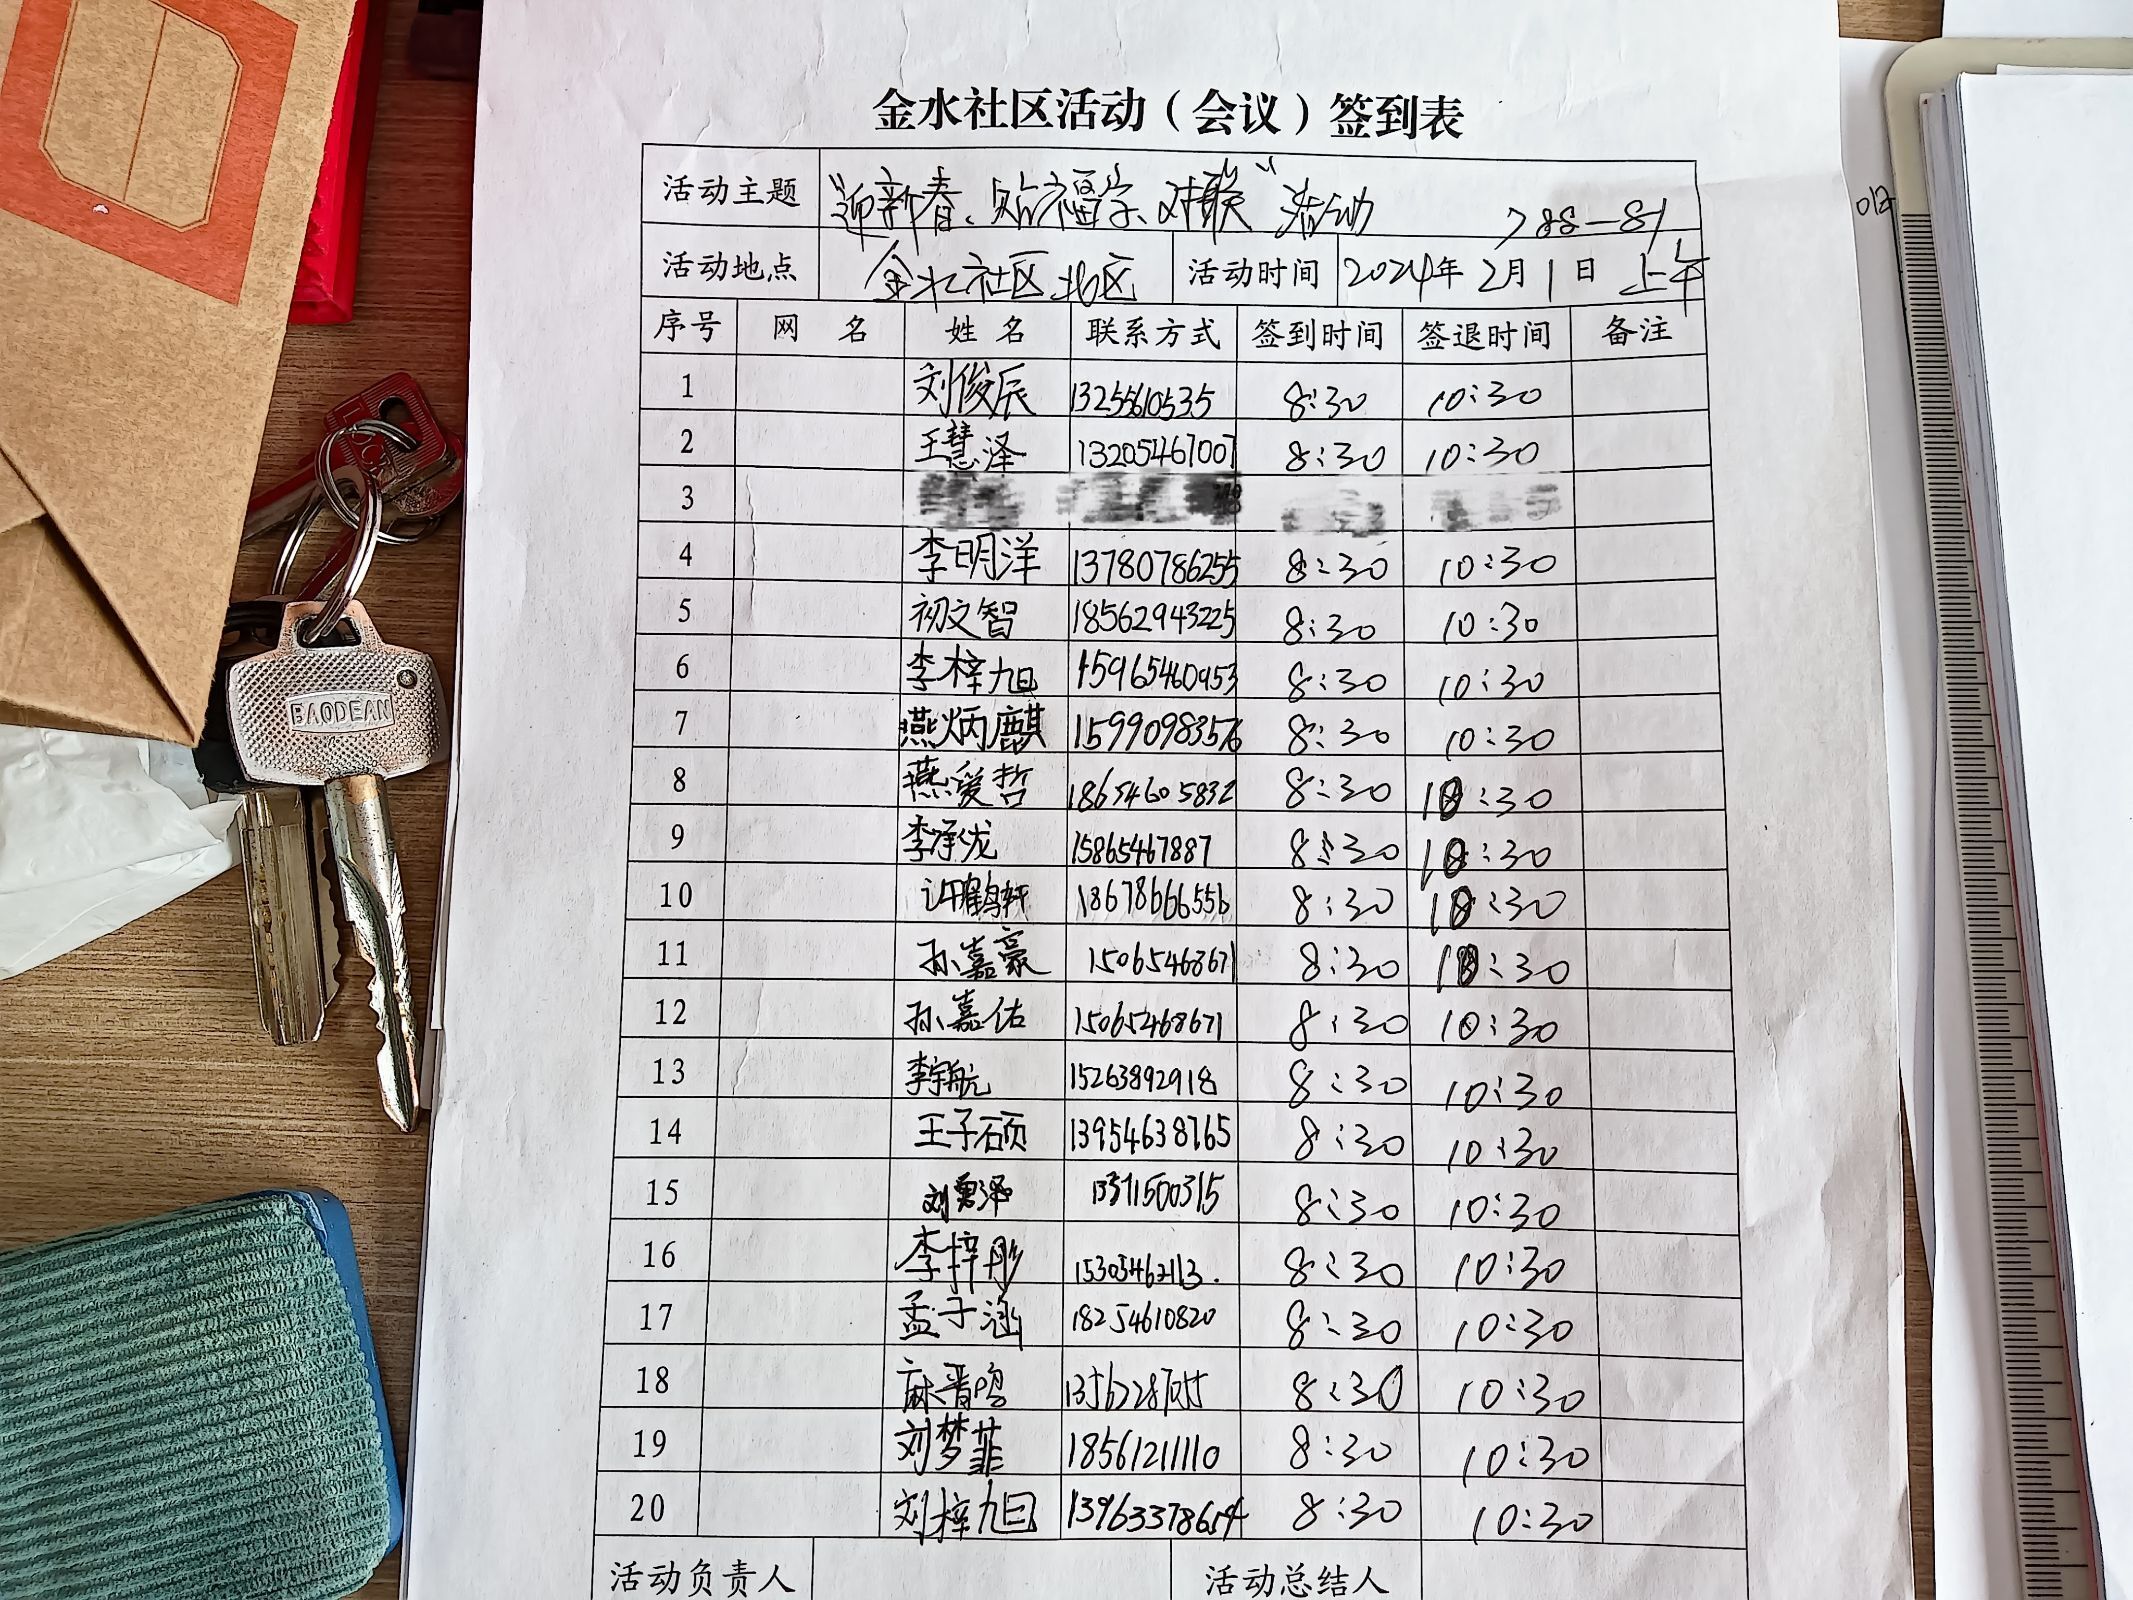 金水社区活动（会议）签到表
活动主题 "迎新春、贴福字、对联"活动 788-81
活动地点 金水社区北区 活动时间 2024年2月1日 上午
序号 网 名 姓 名 联系方式 签到时间 签退时间 备注
1 刘俊辰 13255610535 8:30 10:30
2 王慧泽 13205467007 8:30 10:30
3
4 李明洋 13780786255 8:30 10:30
5 初文智 18562943225 8:30 10:30
6 李梓旭 15965460953 8:30 10:30
7 燕炳麒 15990983576 8:30 10:30
8 燕爱哲 18654605832 8:30 10:30
9 李承优 15865467887 8:30 10:30
10 许鹤轩 18678666556 8:30 10:30
11 孙嘉豪 15065468671 8:30 10:30
12 孙嘉佑 15065468671 8:30 10:30
13 李宇航 15263892918 8:30 10:30
14 王子硕 13954638765 8:30 10:30
15 刘勇泽 13371500315 8:30 10:30
16 李梓彤 15305462113. 8:30 10:30
17 孟子涵 18254610820 8:30 10:30
18 麻晋鸣 8:30 10:30
19 刘梦菲 18561211110 8:30 10:30
20 刘梓旭 13963378654 8:30 10:30
活动负责人 活动总结人
BAODEAN